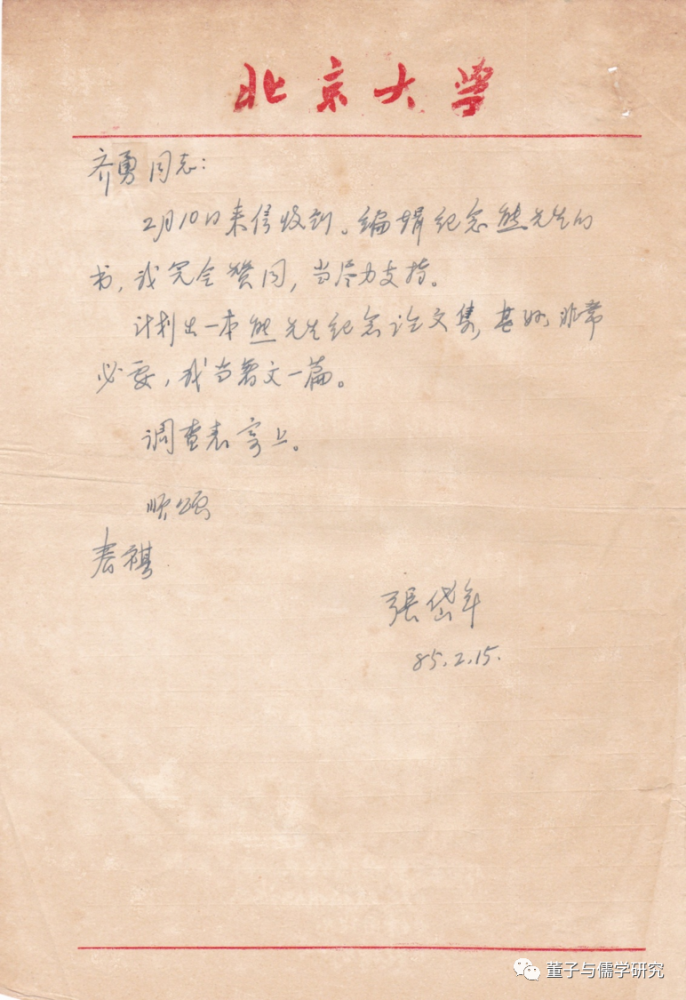 北京大学
齐勇同志：
2月10日来信收到。编辑纪念熊先生的
书，我完全赞同，当尽力支持。
计划出一本熊先生纪念论文集，甚好，非常
必要，我当写文一篇。
调查表寄上。
顺颂
春祺
張岱年
85.2.15.
董子与儒学研究